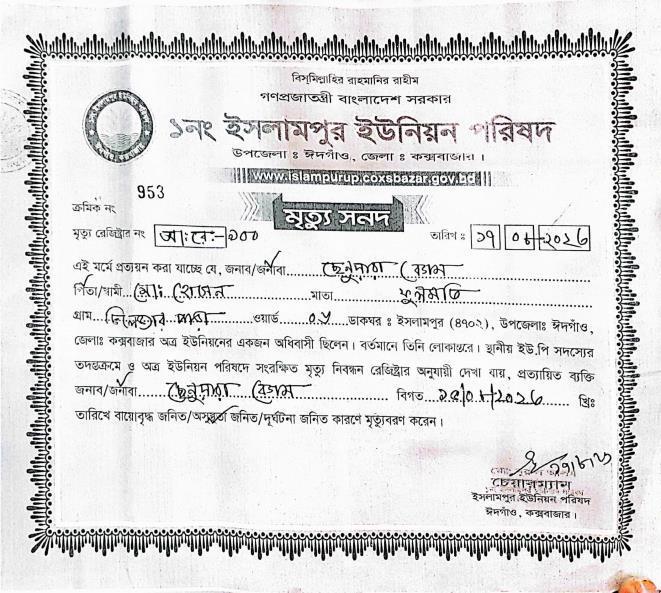 বিস্‌মিল্লাহির রাহমানির রাহীম
গণপ্রজাতন্ত্রী বাংলাদেশ সরকার
১নং ইসলামপুর ইউনিয়ন পরিষদ
উপজেলা ঃ ঈদগাঁও, জেলা ঃ কক্সবাজার।
www.islampurup.coxsbazar.gov.bd
953
ক্রমিক নং
মৃত্যু সনদ
মৃত্যু রেজিষ্ট্রার নং তারিখ ঃ
এই মর্মে প্রত্যয়ন করা যাচ্ছে যে, জনাব/জনাবা ছেনুয়ারা বেগম
পিতা/স্বামী মোঃ হোসেন মাতা ফুলমতি
গ্রাম ওয়ার্ড ডাকঘর ঃ ইসলামপুর (৪৭০২), উপজেলাঃ ঈদগাঁও,
জেলাঃ কক্সবাজার অত্র ইউনিয়নের একজন অধিবাসী ছিলেন। বর্তমানে তিনি লোকান্তরে। স্থানীয় ইউ.পি সদস্যের
তদন্তক্রমে ও অত্র ইউনিয়ন পরিষদে সংরক্ষিত মৃত্যু নিবন্ধন রেজিষ্ট্রার অনুযায়ী দেখা যায়, প্রত্যায়িত ব্যক্তি
জনাব/জনাবা ছেনুয়ারা বেগম বিগত খ্রিঃ
তারিখে বায়োবৃদ্ধ জনিত/অসুস্থতা জনিত/দূর্ঘটনা জনিত কারণে মৃত্যুবরণ করেন।
চেয়ারম্যান
ইসলামপুর ইউনিয়ন পরিষদ
ঈদগাঁও, কক্সবাজার।